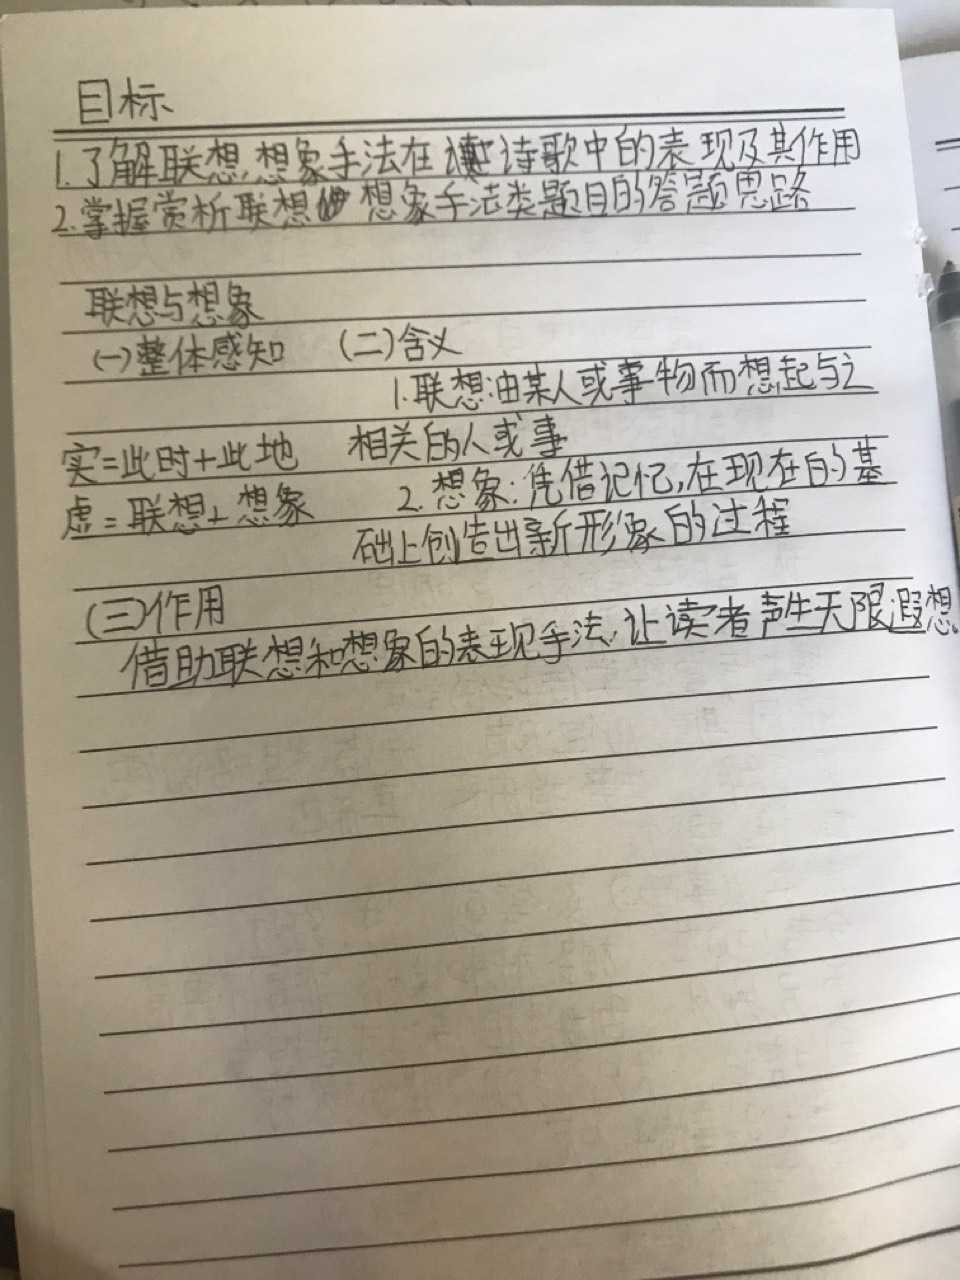 目标
1.了解联想,想象手法在诗歌中的表现及其作用
2.掌握赏析联想 想象手法类题目的答题思路
联想与想象
(一)整体感知 (二)含义
1.联想:由某人或事物而想起与之
实=此时+此地 相关的人或事
虚=联想+想象 2.想象:凭借记忆,在现在的基
础上创造出新形象的过程
(三)作用
借助联想和想象的表现手法,让读者产生无限遐想。